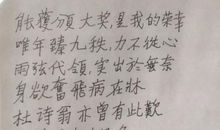 能獲頒大奖,是我的荣幸
唯年臻九秩,力不從心
兩弦代領,實出於無奈
身欲奮飛病在牀
杜詩翁亦曾有此歎